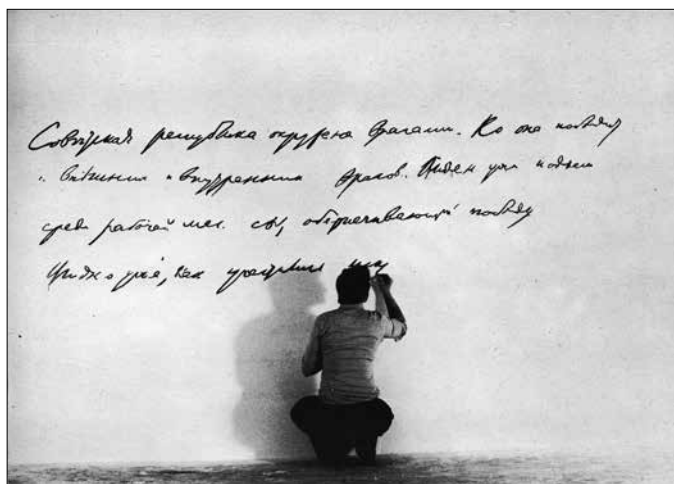 Советская республика окружена врагами. Но она победит
и внешних и внутренних врагов. Виден уже подъем
среди рабочей мас. сы, обеспечивающий победу
Видно уже, как участились